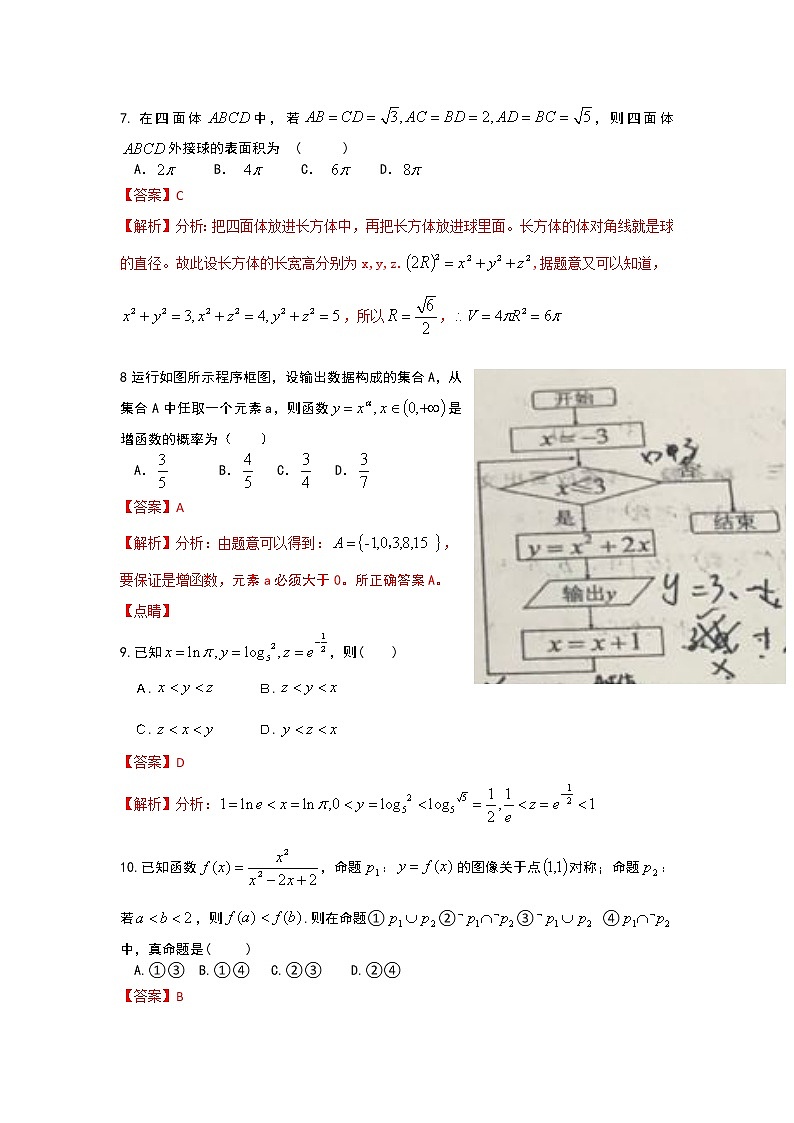 7. 在四面体 ABCD 中，若 AB = CD = √3, AC = BD = 2, AD = BC = √5，则四面体
ABCD 外接球的表面积为 （ ）
A. 2π B. 4π C. 6π D. 8π
【答案】C
【解析】分析：把四面体放进长方体中，再把长方体放进球里面。长方体的体对角线就是球
的直径。故此设长方体的长宽高分别为 x,y,z. (2R)² = x² + y² + z²,据题意又可以知道，
x² + y² = 3, x² + z² = 4, y² + z² = 5，所以 R = √6/2，∴V = 4πR² = 6π
8 运行如图所示程序框图，设输出数据构成的集合 A，从
集合 A 中任取一个元素 a，则函数 y = x^α, x ∈ (0,+∞) 是
增函数的概率为（ ）
A. 3/5 B. 4/5 C. 3/4 D. 3/7
【答案】A
【解析】分析：由题意可以得到：A = {-1,0,3,8,15 }，
要保证是增函数，元素 a 必须大于 0。所正确答案 A。
【点睛】
开始
x = -3
x≤3
否
是
结束
y = x² + 2x
输出y
x = x + 1
y = 3、
9. 已知 x = ln π, y = log₅², z = e^(-1/2)，则( )
A. x < y < z B. z < y < x
C. z < x < y D. y < z < x
【答案】D
【解析】分析：1 = ln e < x = ln π, 0 < y = log₅² < log₅^√5 = 1/2, 1/e < z = e^(-1/2) < 1
10. 已知函数 f(x) = x²/(x² - 2x + 2)，命题 p₁: y = f(x) 的图像关于点 (1,1) 对称；命题 p₂:
若 a < b < 2，则 f(a) < f(b). 则在命题① p₁∪p₂ ②¬p₁∩¬p₂ ③¬p₁∪p₂ ④p₁∩¬p₂
中，真命题是( )
A.①③ B.①④ C.②③ D.②④
【答案】B